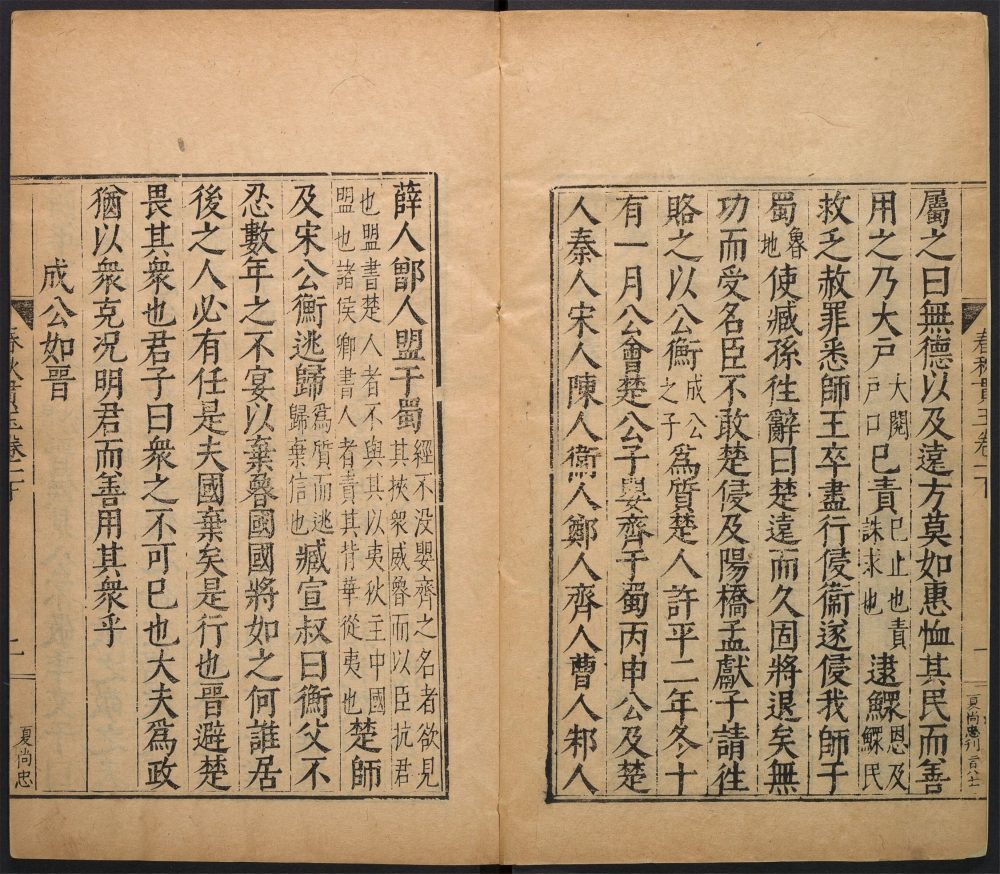 屬之曰無德以及遠方莫如惠恤其民而善
用之乃大戶大閱戶口已責已止也責誅求也逮鰥恩及鰥民
救乏赦罪悉師王卒盡行侵衞遂侵我師于
蜀魯地使臧孫徃辭曰楚遠而久固將退矣無
功而受名臣不敢楚侵及陽橋孟獻子請徃
賂之以公衡成公之子為質楚人許平二年冬十
有一月公會楚公子嬰齊于蜀丙申公及楚
人秦人宋人陳人衞人鄭人齊人曹人邾人
春秋貫玉卷二下
一
夏尚忠刊
薛人鄫人盟于蜀經不没嬰齊之名者欲見其挾衆威魯而以臣抗君
也盟書楚人者不與其以夷狄主中國盟也諸侯卿書人者責其背華從夷也楚師
及宋公衡逃歸爲質而逃歸棄信也臧宣叔曰衡父不
忍數年之不宴以棄魯國國將如之何誰居
後之人必有任是夫國棄矣是行也晉避楚
畏其衆也君子曰衆之不可已也大夫爲政
猶以衆克况明君而善用其衆乎
成公如晉
春秋貫玉卷二下
夏尚忠